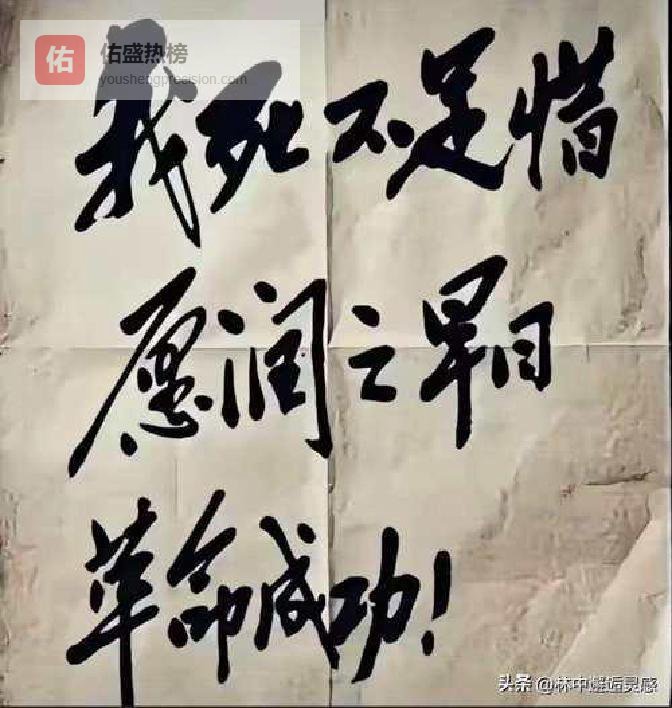 佑
佑盛热榜
youshengprecision.com
我死不足惜
愿润之早日
革命成功!
头条 @林中邂逅灵感